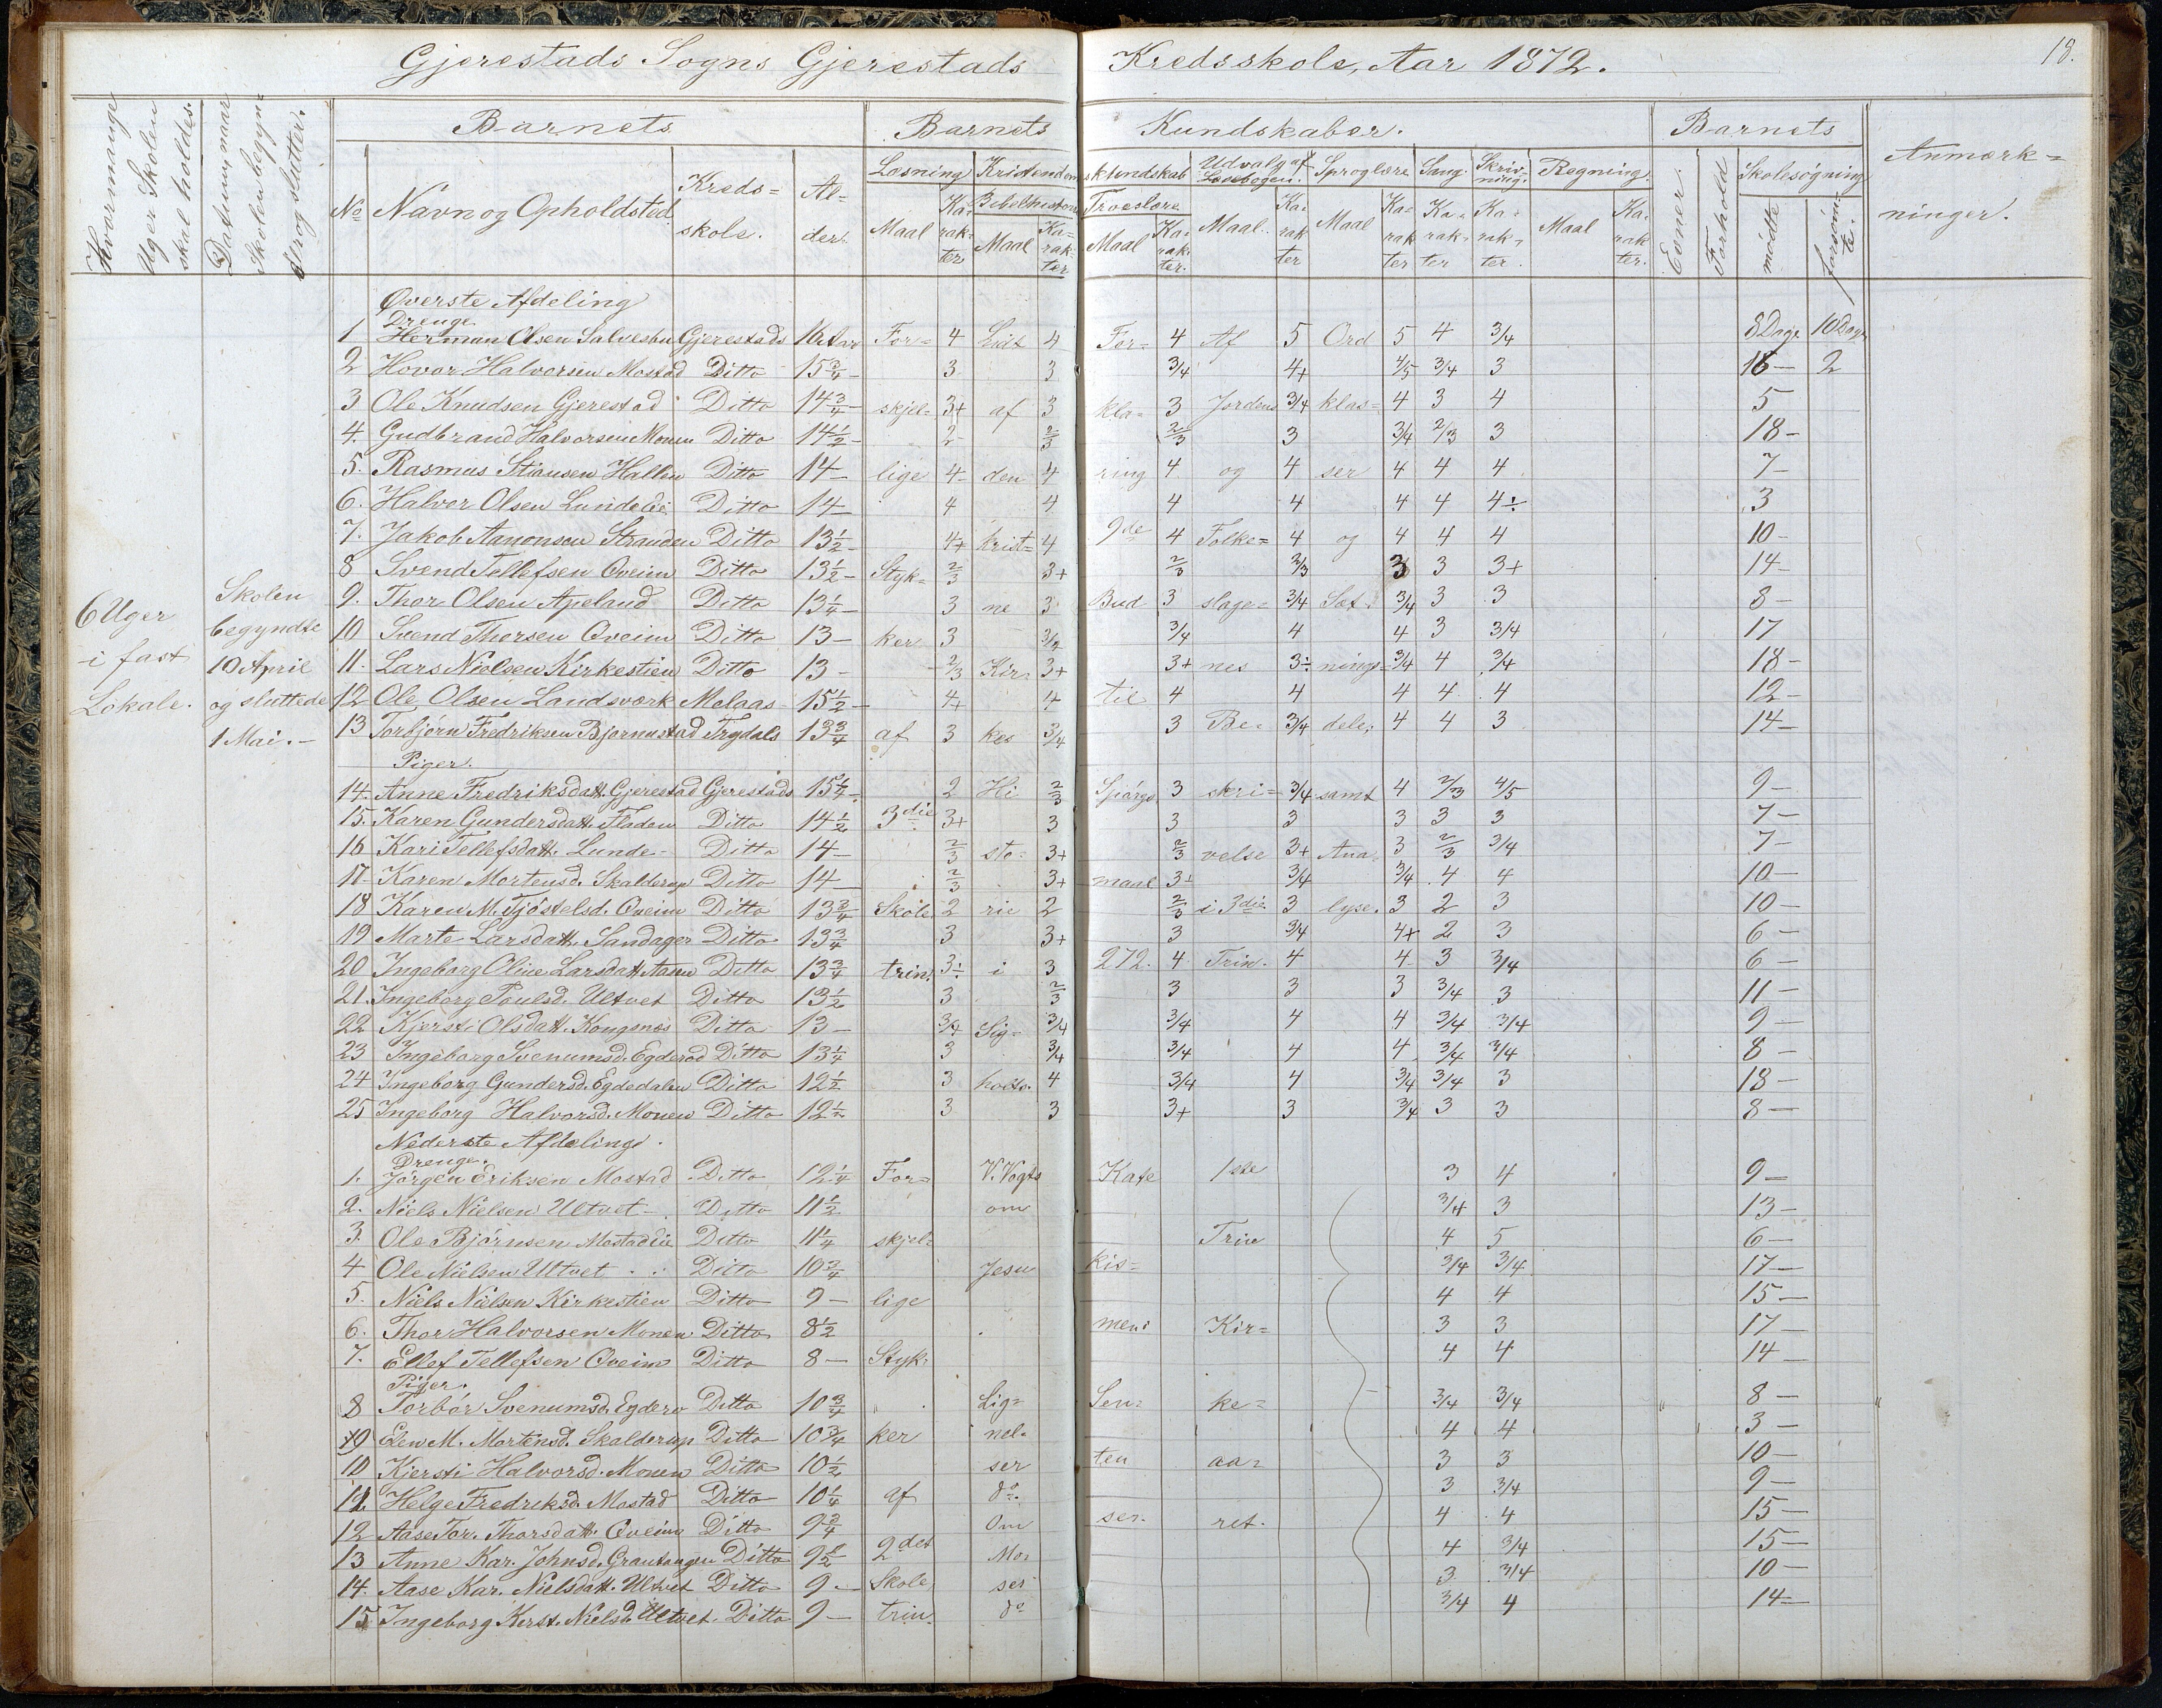 Gjerestads Sogns Gjerestads Kredsskole, Aar 1872. 18.
Hvormange Uger Skolen skal holdes.
Datum, naar Skolen begyn= der og slutter.
Barnets
Barnets Kundskaber.
Barnets
Anmærk= ninger.
No Navn og Opholdsted Kreds= skole. Al= der.
Læsning Maal Ka= rak= ter
Kristendomskundskab Bibelhistorie Maal Ka= rak= ter Troeslære Maal Ka= rak= ter.
Udvalg af Læsebogen. Maal. Ka= rak ter
Sproglære Maal Ka= rak ter
Sang. Ka= rak= ter
Skriv= ning. Ka= rak= ter.
Regning. Maal Ka= rak ter.
Evner. Forhold Skolesøgning mødte forsøm= te.
6 Uger i fast Lokale.
Skolen begyndte 10 April og sluttede 1 Mai.
Øverste Afdeling
Drenge
1 Herman Olsen Gjerestads 16 Aar For= 4 Lidt 4 For= 4 Af 5 Ord 5 4 3/4 8 Dage 10 Dage
2 Hovor Halvorsen Mostad Ditto 15 3/4 3 3 3/4 4+ 4/5 3/4 3 16 2
3 Ole Knudsen Gjerestad Ditto 14 3/4 skjel= 3+ af 3 kla= 3 Jordens 3/4 klas= 4 3 4 5
4. Gudbrand Halvorsen Monen Ditto 14 1/2 2 2/3 2/3 3 3/4 2/3 3 18
5. Rasmus Stiansen Hallen Ditto 14 lige 4 den 4 ring 4 og 4 ser 4 4 4 7
6. Halvor Olsen Lundelie Ditto 14 4 4 4 4 4 4 4÷ 3
7. Jakob Aanonsen Stranden Ditto 13 1/2 4+ krist= 4 9de 4 Folke= 4 og 4 4 4 10
8 Svend Tellefsen Øveim Ditto 13 1/2 Styk= 2/3 3+ 2/3 2/3 3 3 3+ 14
9. Thor Olsen Apeland Ditto 13 1/4 3 ne 3 Bud 3 slage= 3/4 Sæt= 3/4 3 3 8
10 Svend Thorsen Øveim Ditto 13 ker 3 3/4 3/4 4 4 3 3/4 17
11. Lars Nielsen Kirkestien Ditto 13 2/3 Kir= 3+ 3+ nes 3÷ nings= 3/4 4 3/4 18
12 Ole Olsen Landsværk Melaas 15 1/2 4+ 4 til 4 4 4 4 4 12
13 Torbjørn Fredriksen Bjornustad Trydals 13 3/4 af 3 kes 3/4 3 Be= 3/4 dele; 4 4 3 14
Piger.
14. Anne Fredriksdatt. Gjerestad Gjerestads 15 1/4 2 Hi 2/3 Spørgs 3 skri= 3/4 samt 4 2/3 4/5 9
15. Karen Gundersdatt. Fladen Ditto 14 1/2 3die 3+ 3 3 3 3 3 3 7
16 Kari Tellefsdatt. Lunde Ditto 14 2/3 sto= 3+ 2/3 velse 3+ Ana= 3 2/3 3/4 7
17 Karen Mortensd. Skalderup Ditto 14 2/3 3+ maal 3+ 3/4 3/4 4 4 10
18 Karen M. Tjøstelsd. Øveim Ditto 13 3/4 Skole 2 rie 2 2/3 i 3die 3 lyse. 3 2 3 10
19 Marte Larsdatt. Sandager Ditto 13 3/4 3 3+ 3 3/4 4+ 2 3 6
20 Ingeborg Oline Larsdatt. Aasen Ditto 13 3/4 trin. 3÷ i 3 272. 4 Trin. 4 4 3 3/4 6
21. Ingeborg Poulsd. Ultvet Ditto 13 1/2 3 2/3 3 3 3 3/4 3 11
22 Kjersti Olsdatt. Kongsnæs Ditto 13 3/4 Sig= 3/4 3/4 4 4 3/4 3/4 9
23 Ingeborg Svenumsd. Egderød Ditto 13 1/4 3 3/4 3/4 4 4 3/4 3/4 8
24 Ingeborg Gundersd. Egdedalen Ditto 12 1/2 3 holts. 4 3/4 4 3/4 3/4 3 18
25 Ingeborg Halvorsd. Monen Ditto 12 1/2 3 3 3+ 3 3/4 3 3 8
Nederste Afdeling.
Drenge.
1. Jørgen Eriksen Mostad Ditto 12 1/4 For= V. Vogts Kate 1ste 3 4 9
2. Niels Nielsen Ultvet Ditto 11 1/2 om 3/4 3 13
3. Ole Bjørnsen Mostadlie Ditto 11 1/4 skjel= Trin 4 5 6
4 Ole Nielsen Ultvet Ditto 10 3/4 Jesu kis= 3/4 3/4 17
5. Niels Nielsen Kirkestien Ditto 9 lige 4 4 15
6. Thor Halvorsen Monen Ditto 8 1/2 mens Kir= 3 3 17
7. Ellef Tellefsen Øveim Ditto 8 Styk= 4 4 14
Piger.
8 Torbør Svenumsd. Egderø Ditto 10 3/4 Lig= Sen= ke= 3/4 3/4 8
9 Elen M. Mortensd. Skalderup Ditto 10 3/4 ker nel= 4 4 3
10 Kjersti Halvorsd. Monen Ditto 10 1/2 ser ten aa= 3 3 10
11. Helge Fredriksd. Mostad Ditto 10 1/4 af do 3 3/4 9
12 Aase Tor. Thorsdatt. Øveim Ditto 9 3/4 Om ser. ret. 4 4 15
13 Anne Kar. Johnsd. Grautangen Ditto 9 1/2 2det Mo= 4 3/4 15
14. Aase Kar. Nielsdatt. Ultvet Ditto 9 Skole ses 3 3/4 10
15 Ingeborg Kerst. Nielsd. Ultvet Ditto 9 trin. do 3/4 4 14